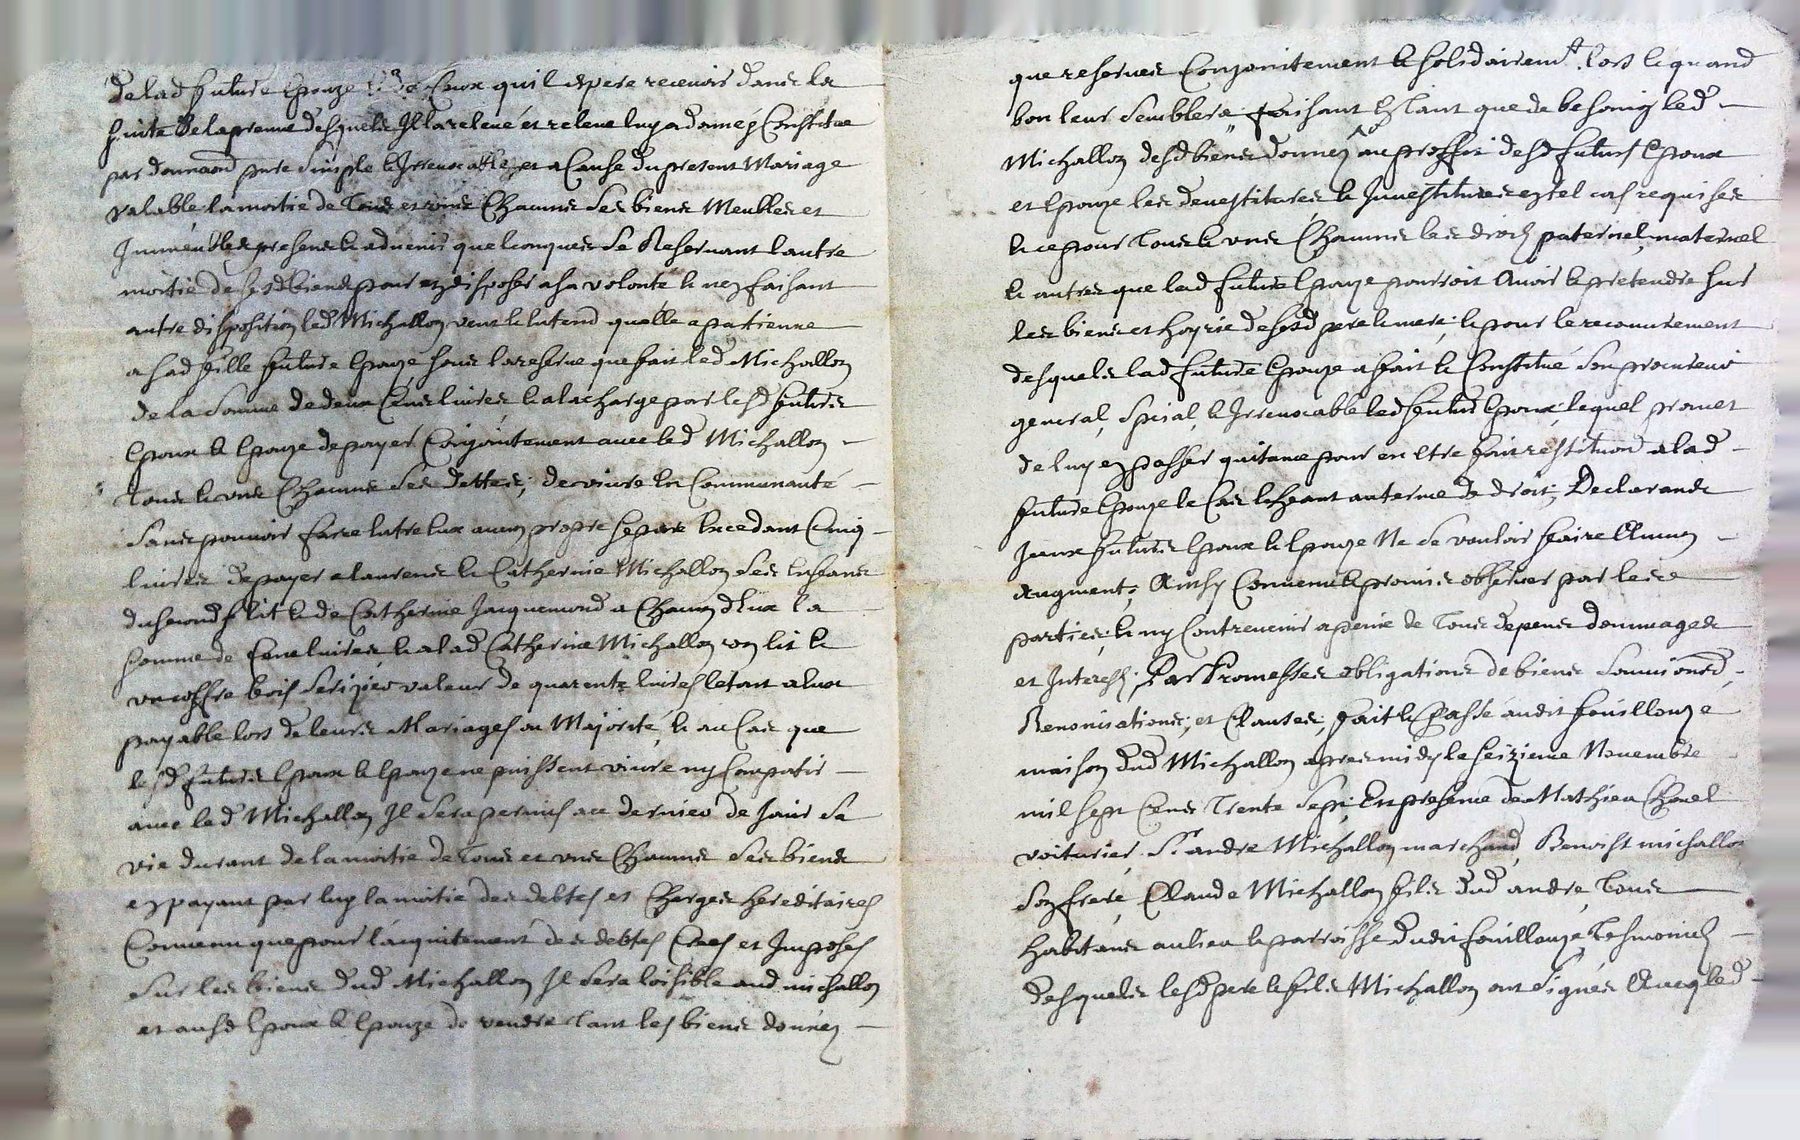 de lad future epouze de ceux quil espere recevoir dans la
suitte de la preuve desquels Il la relevé et releve luy a donné et Constitue
par donnaōn pure simple et Irrevocable, et a Cause du present Mariage
valable la moitié de tous et uns Chacuns ses biens Meubles et
Immeubles presens et advenir quelconques se Reservant lautre
moitié de sesd biens pour en disposer a sa volonté et ney faisant
autre disposition led Michallon veut et entend quelle apartienne
a sad fille future epouze sous la reserve que fait led Michallon
de la somme de deux Cens livres et a la charge par lesd futurs
epoux et epouze de payer Conjointement avec led Michallon
tous et uns Chacuns ses dettes, de vivre en Communauté
sans pouvoir faire entre eux aucun propre separé Excedant Cinq
livres de payer a laurens et Catherine Michallon ses Enfans
du second lit et de Catherine Jacquemond a Chacun deux la
somme de Cent livres, et a lad Catherine Michallon un lit et
un coffre bois serizier valeur de quarente livres le tout a eux
payable lors de leurs Mariages ou Majorité, et au Cas que
lesd futurs epoux et epouze ne puissent vivre ny Compatir
avec led Michallon Il sera permis a ce dernier de Jouir sa
vie durant de la moitié de tous et uns Chacuns ses biens
en payant par luy la moitié des debtes et Charges hereditaires
Convenu que pour lacquitement des debtes Crees et Imposes
sur les biens dud Michallon Il sera loisible aud michallon
et ausd epoux et epouze de vendre tant les biens donnez
que reservez Conjointement et solidairemt. lors et quand
bon leur semblera faisant Estant que de besoing led
Michallon desd biens donnez au proffit desd futurs epoux
et epouze les devestitures et Investitures en tel cas requises
et ce pour tous et uns Chacuns les droits paternel, maternel
et autres que lad future epouze pourroit avoir et pretendre sur
les biens et hoyrie de sesd pere et mere, et pour le recouvrement
desquels lad future epouze a fait et Constitué son procureur
general, special, et Irrevocable led futur epoux, lequel promet
de luy en passer quitance pour en etre fait restitution a lad
future epouze le Cas echeant au terme de droit, Declarants
Iceux futurs epoux et epouze Ne se vouloir faire Aucun
augment; Ainsy Convenu et promis observer par lesd
parties, et ny Contrevenir a peine de tous depens dommages
et Interests, Par Promesses obligations de biens soumissions,
Renonciations, et Clauses, fait et Passé audit fouillouze
maison dud Michallon apres midy le seizieme Novembre
mil sept Cens trente sept; En presence de Mathieu Chovel
voiturier Sr. andre Michallon marchand, Benoist michallon
son frere, Claude Michallon fils dud andre, tous
habitans au lieu et parroisse dudit fouillouze tesmoins
desquels lesd pere et fils Michallon ont signés Avec led